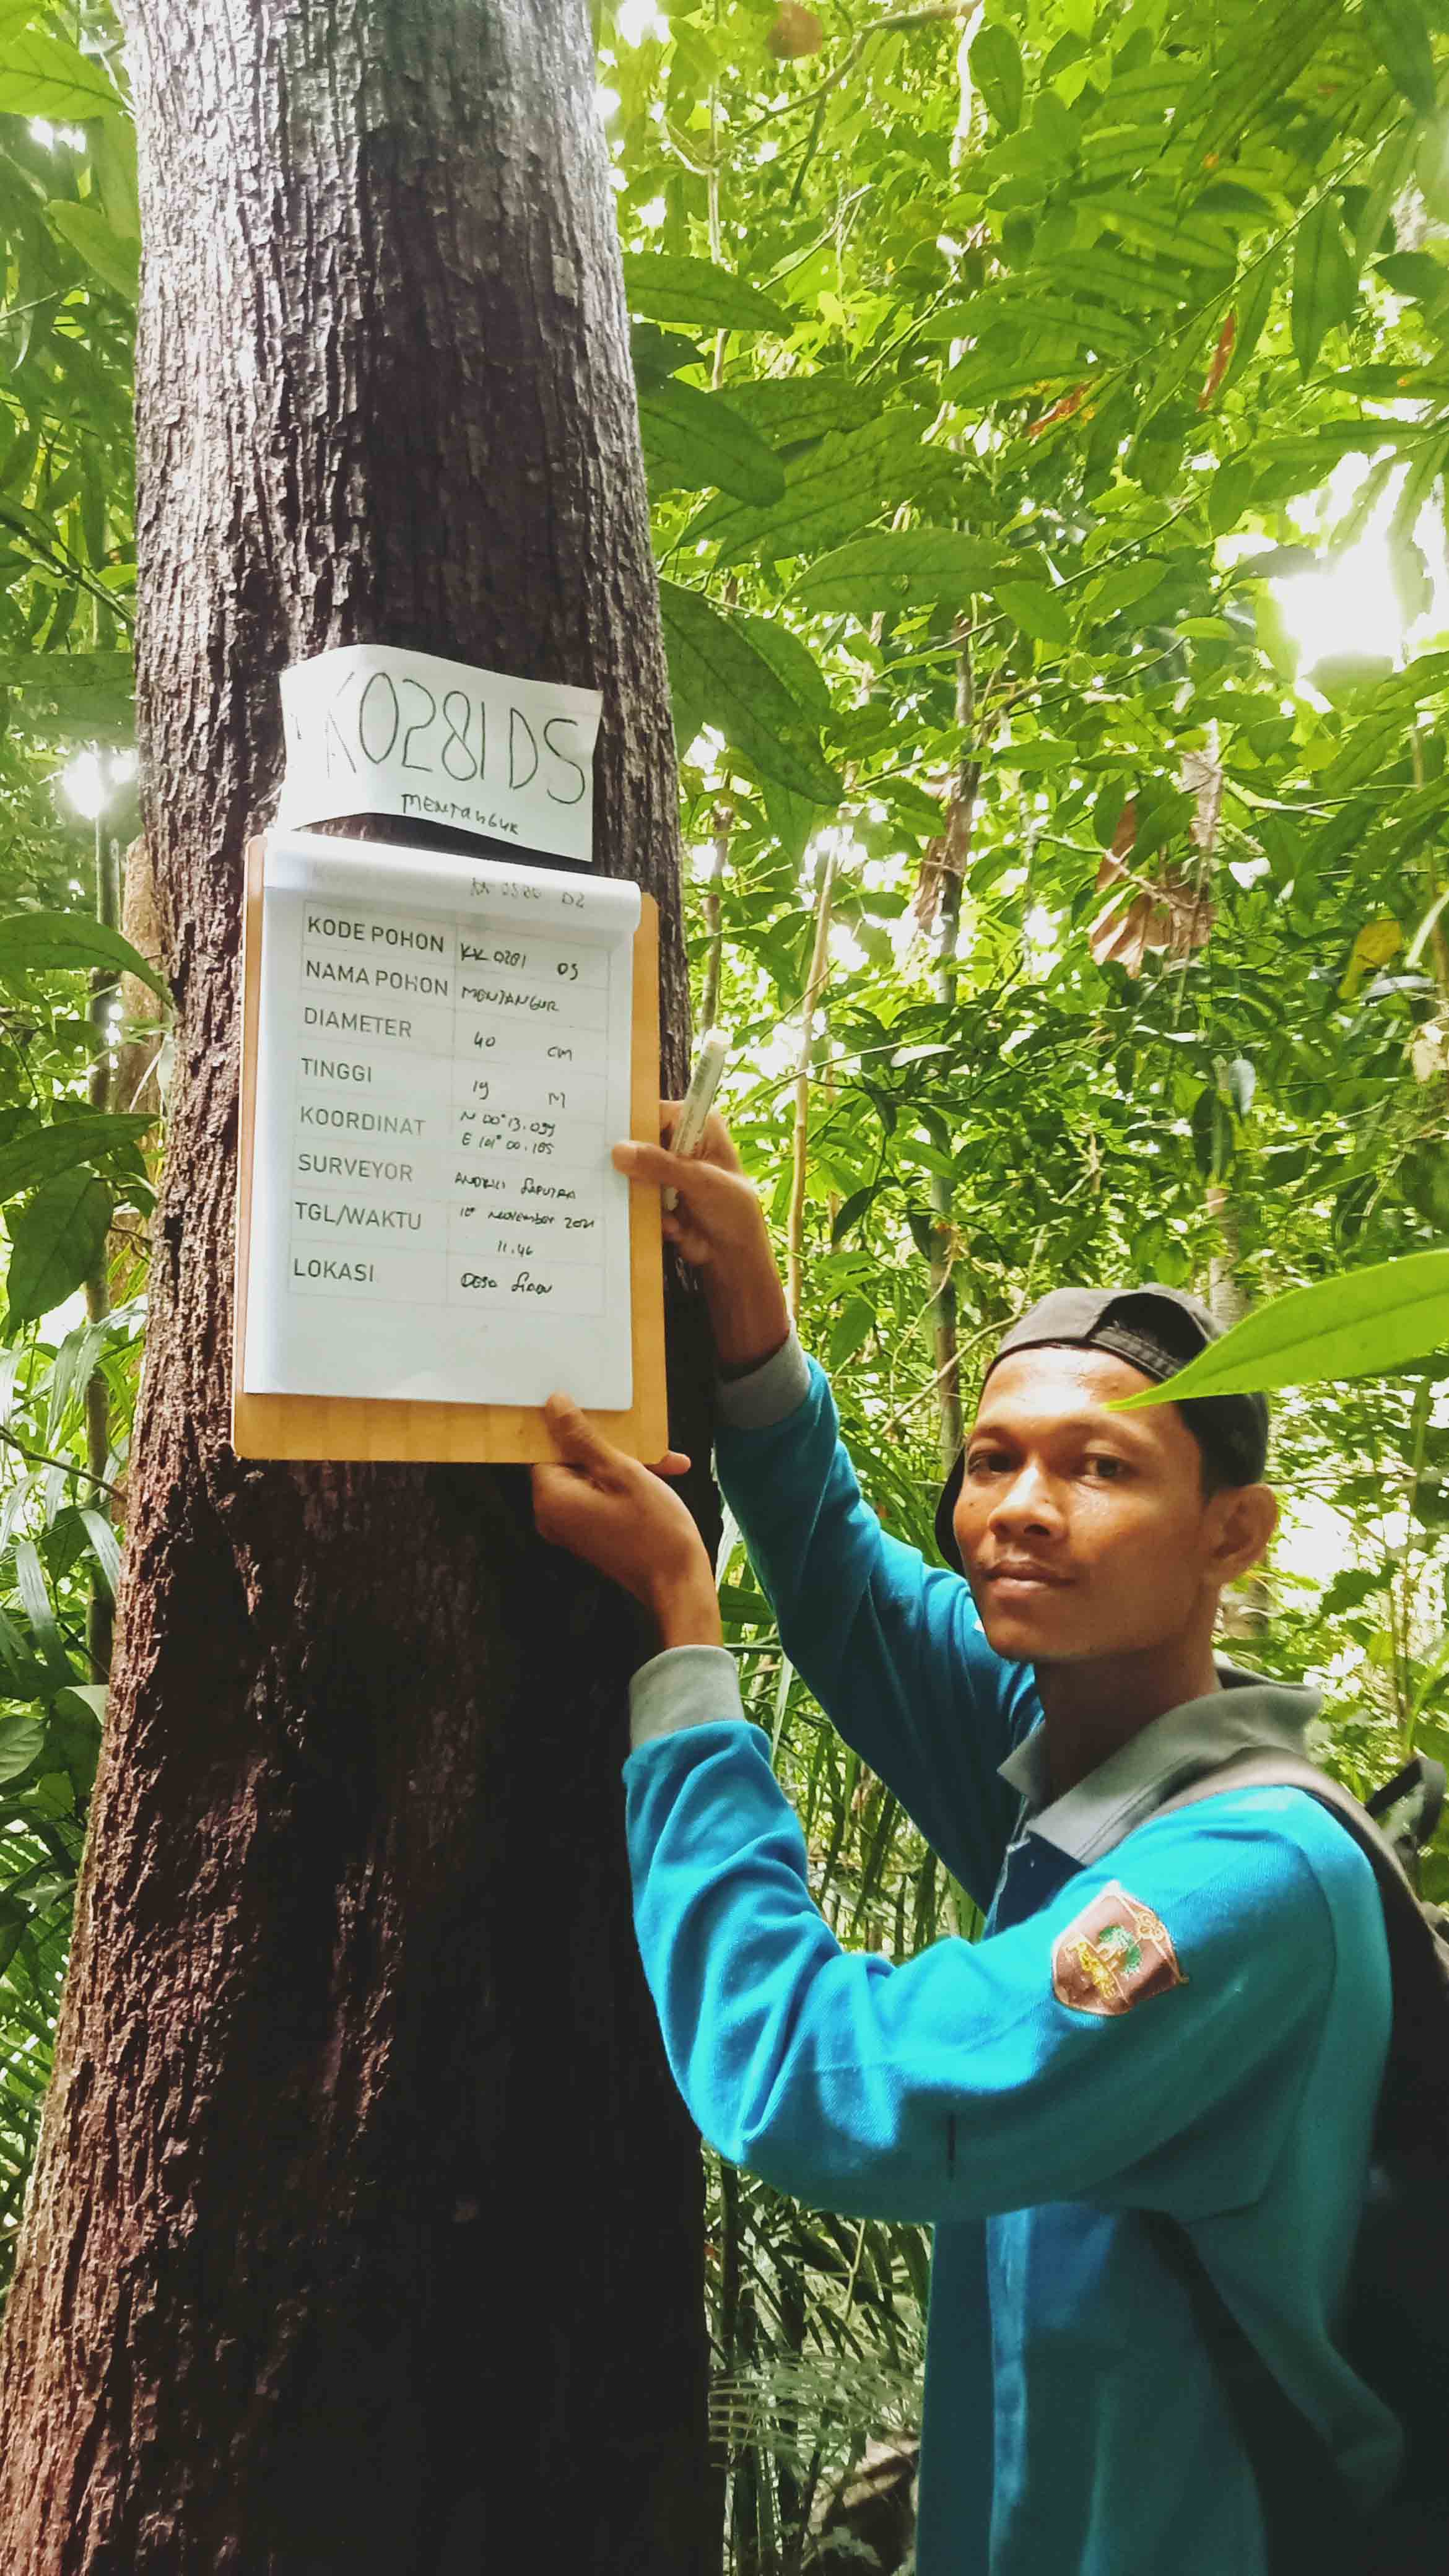 K0281DS
MENTANGUR
KODE POHON KK 0281 DS
NAMA POHON MENTANGUR
DIAMETER 40 CM
TINGGI 19 M
KOORDINAT N 00° 13.099
E 101° 00.185
SURVEYOR SAPUTRA
TGL/WAKTU 10 November 2021
11.46
LOKASI DESA